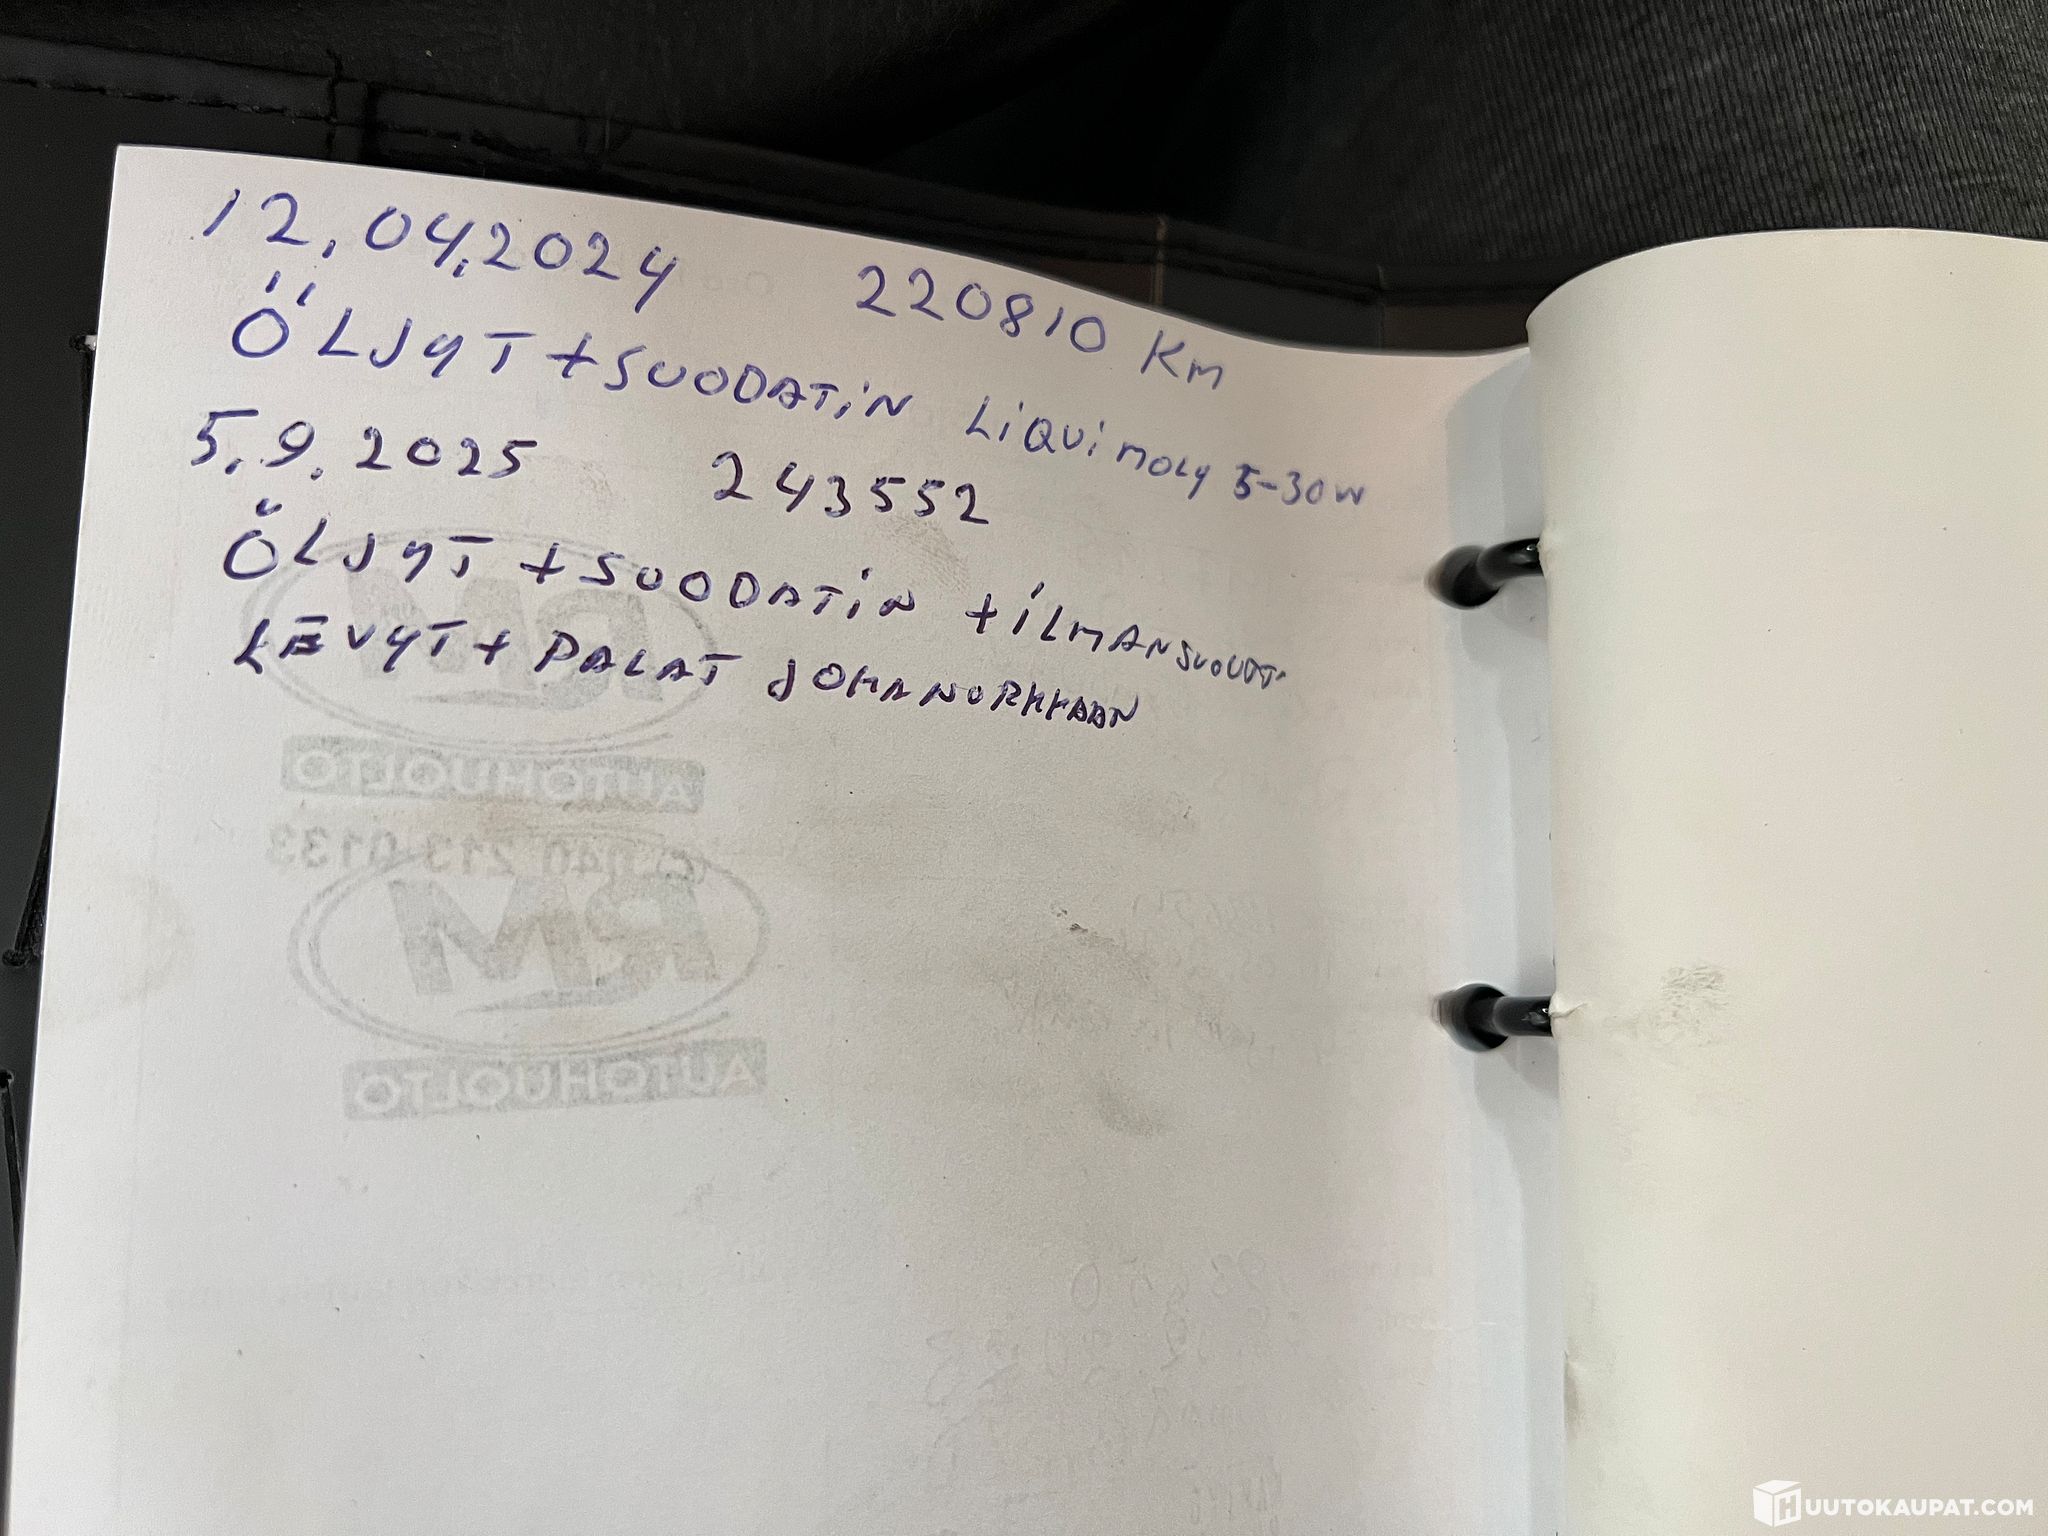 12.04.2024 220810 Km
ÖLJYT + SUODATIN LiQUi MOLY 5-30W
5.9.2025 243552
ÖLJYT + SUODATIN + ILMANSUODAT.
LEVYT + PALAT
AUTOHUOLTO
040 213 0133
RM
AUTOHUOLTO
HUUTOKAUPAT.COM